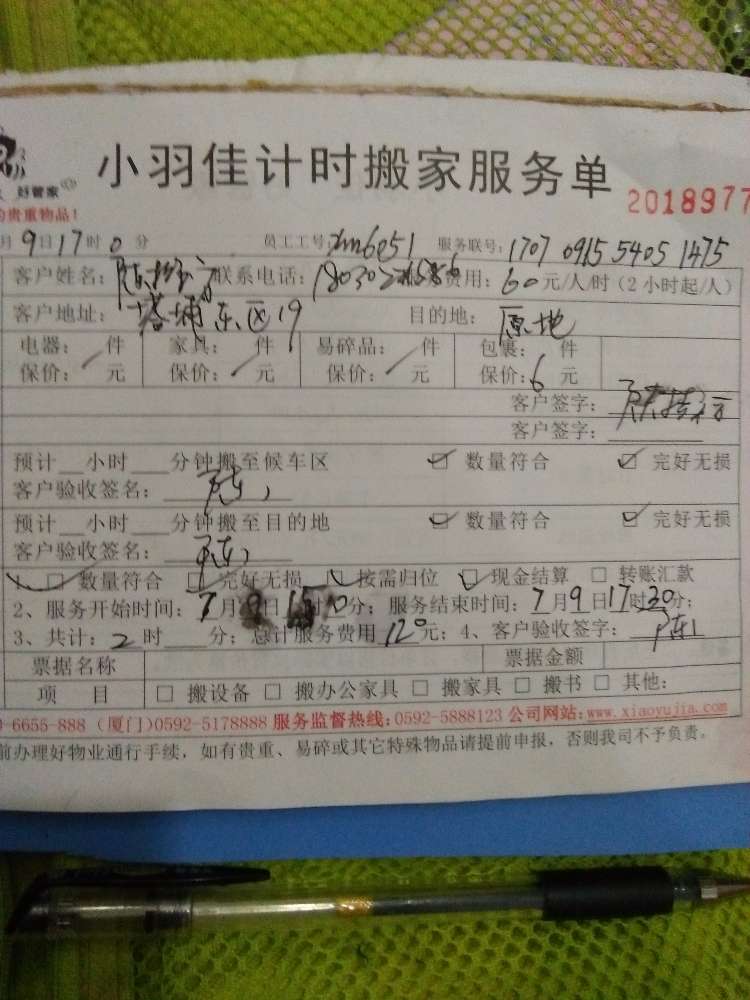 小羽佳计时搬家服务单
好管家
2018977
贵重物品!
月9日17时0分 员工工号:xm6051 服务联号:1707 0915 5405 1475
客户姓名: 联系电话: 费用:60元/人/时(2小时起/人)
客户地址:塔埔东区19 目的地:原地
电器: 件 家具: 件 易碎品: 件 包裹: 件
保价: 元 保价: 元 保价: 元 保价:6元
客户签字:
客户签字:
预计__小时___分钟搬至候车区 ☑ 数量符合 ☑ 完好无损
客户验收签名:陈
预计__小时___分钟搬至目的地 ☑ 数量符合 ☑ 完好无损
客户验收签名:陈
1、☑ 数量符合 ☑ 完好无损 ☑ 按需归位 ☑ 现金结算 □ 转账汇款
2、服务开始时间:7月9日15时 0分;服务结束时间:7月9日17时30分;
3、共计:2时___分;总计服务费用120元;4、客户验收签字:陈
票据名称 票据金额
项 目 □ 搬设备 □ 搬办公家具 □ 搬家具 □ 搬书 □ 其他:
-6655-888 (厦门)0592-5178888 服务监督热线:0592-5888123 公司网站:www.xiaoyujia.com
前办理好物业通行手续,如有贵重、易碎或其它特殊物品请提前申报,否则我司不予负责。